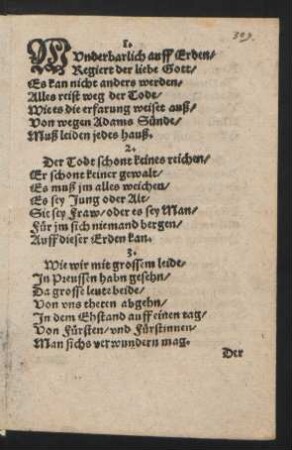 309.
1.
WUnderbarlich auff Erden/
Regiert der liebe Gott/
Es kan nicht anders werden/
Alles reist weg der Todt/
Wie es die erfarung weiset auß/
Von wegen Adams Sünde/
Muß leiden jedes hauß.
2.
Der Todt schont keines reichen/
Er schont keiner gewalt/
Es muß jm alles weichen/
Es sey Jung oder Alt/
Sie sey Fraw/oder es sey Man/
Für jm sich niemand bergen/
Auff dieser Erden kan.
3.
Wie wir mit grossem leide/
In Preussen habn gesehn/
Da grosse leute beide/
Von vns theten abgehn/
In dem Ehstand auff einen tag/
Von Fürsten/vnd Fürstinnen/
Man sichs verwundern mag.
Der